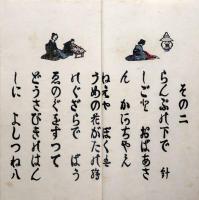 その二
らんぷの下で 針
しごと おばあさ
ん かはちやえ
ねえや ぼくを
うめの花がたの
れぐざらで ばう
ゑのぐをすつて
どうさびきのはん
しに よしつね八